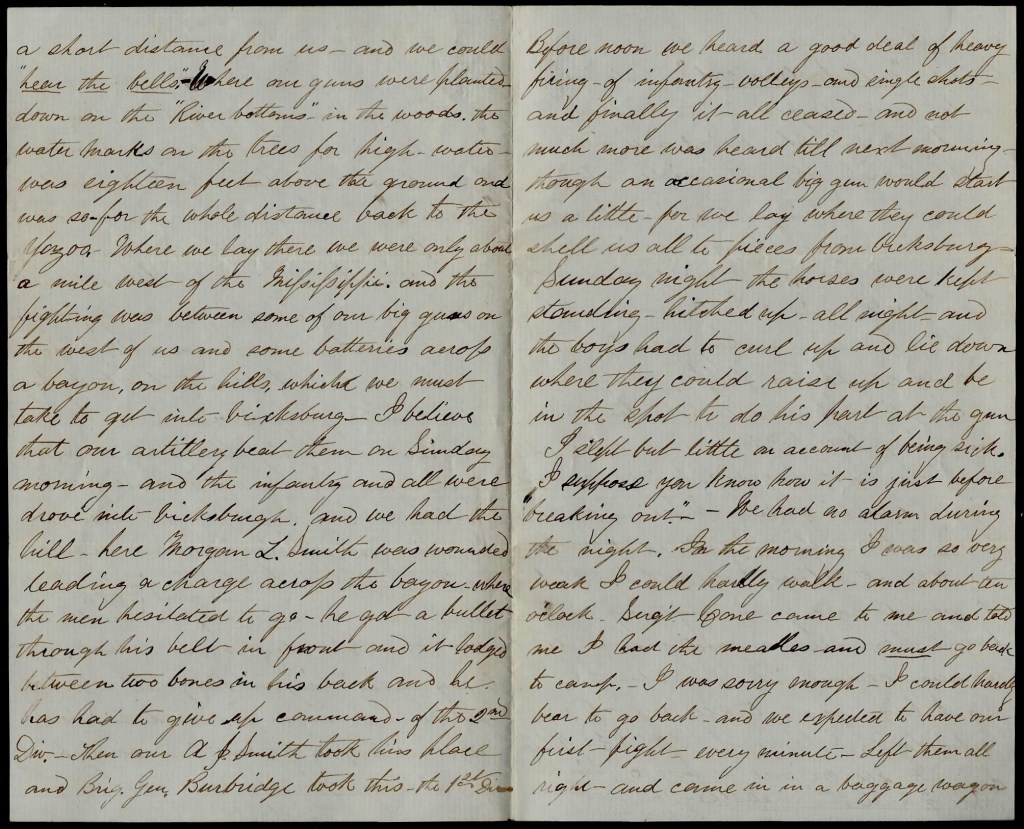 a short distance from us - and we could
"hear the bells." - Where our guns were planted -
down on the "River bottoms" - in the woods. the
water marks on the trees for high-water -
was eighteen feet above the ground and
was so - for the whole distance back to the
Yazoo - Where we lay there we were only about
a mile west of the Mississippi. and the
fighting was between some of our big guns on
the west of us and some batteries across
a bayou, on the hills, which we must
take to get into vicksburg - I believe
that our artillery beat them on Sunday
morning - and the infantry and all were
drove into vicksburgh. and we had the
hill - here Morgan L. Smith was wounded
leading a charge across the bayou - where
the men hesitated to go - he got a bullet
through his belt in front and it lodged
between two bones in his back and he.
has had to give up command - of the 2nd
Div. - Then our A J Smith took his place
and Brig. Gen. Burbridge took this - the 1st Div
Before noon we heard a good deal of heavy
firing - of infantry - volleys - and single shots -
and finally it - all ceased - and not
much more was heard till next morning -
though an occasional big gun would start
us a little - for we lay where they could
shell us all to pieces from vicksburg -
Sunday night the horses were kept
standing - hitched up - all night - and
the boys had to curl up and lie down
where they could raise up and be
in the spot to do his part at the gun
I slept but little on account of being sick.
I suppose you know how it is just before
"breaking out." - We had no alarm during
the night. In the morning I was so very
weak I could hardly walk - and about ten
o'clock - Surg't Cone came to me and told
me I had the measles - and must go back
to camp. - I was sorry enough - I could hardly
bear to go back - and we expected to have our
first - fight - every minute - Left them all
right - and came in in a baggage wagon